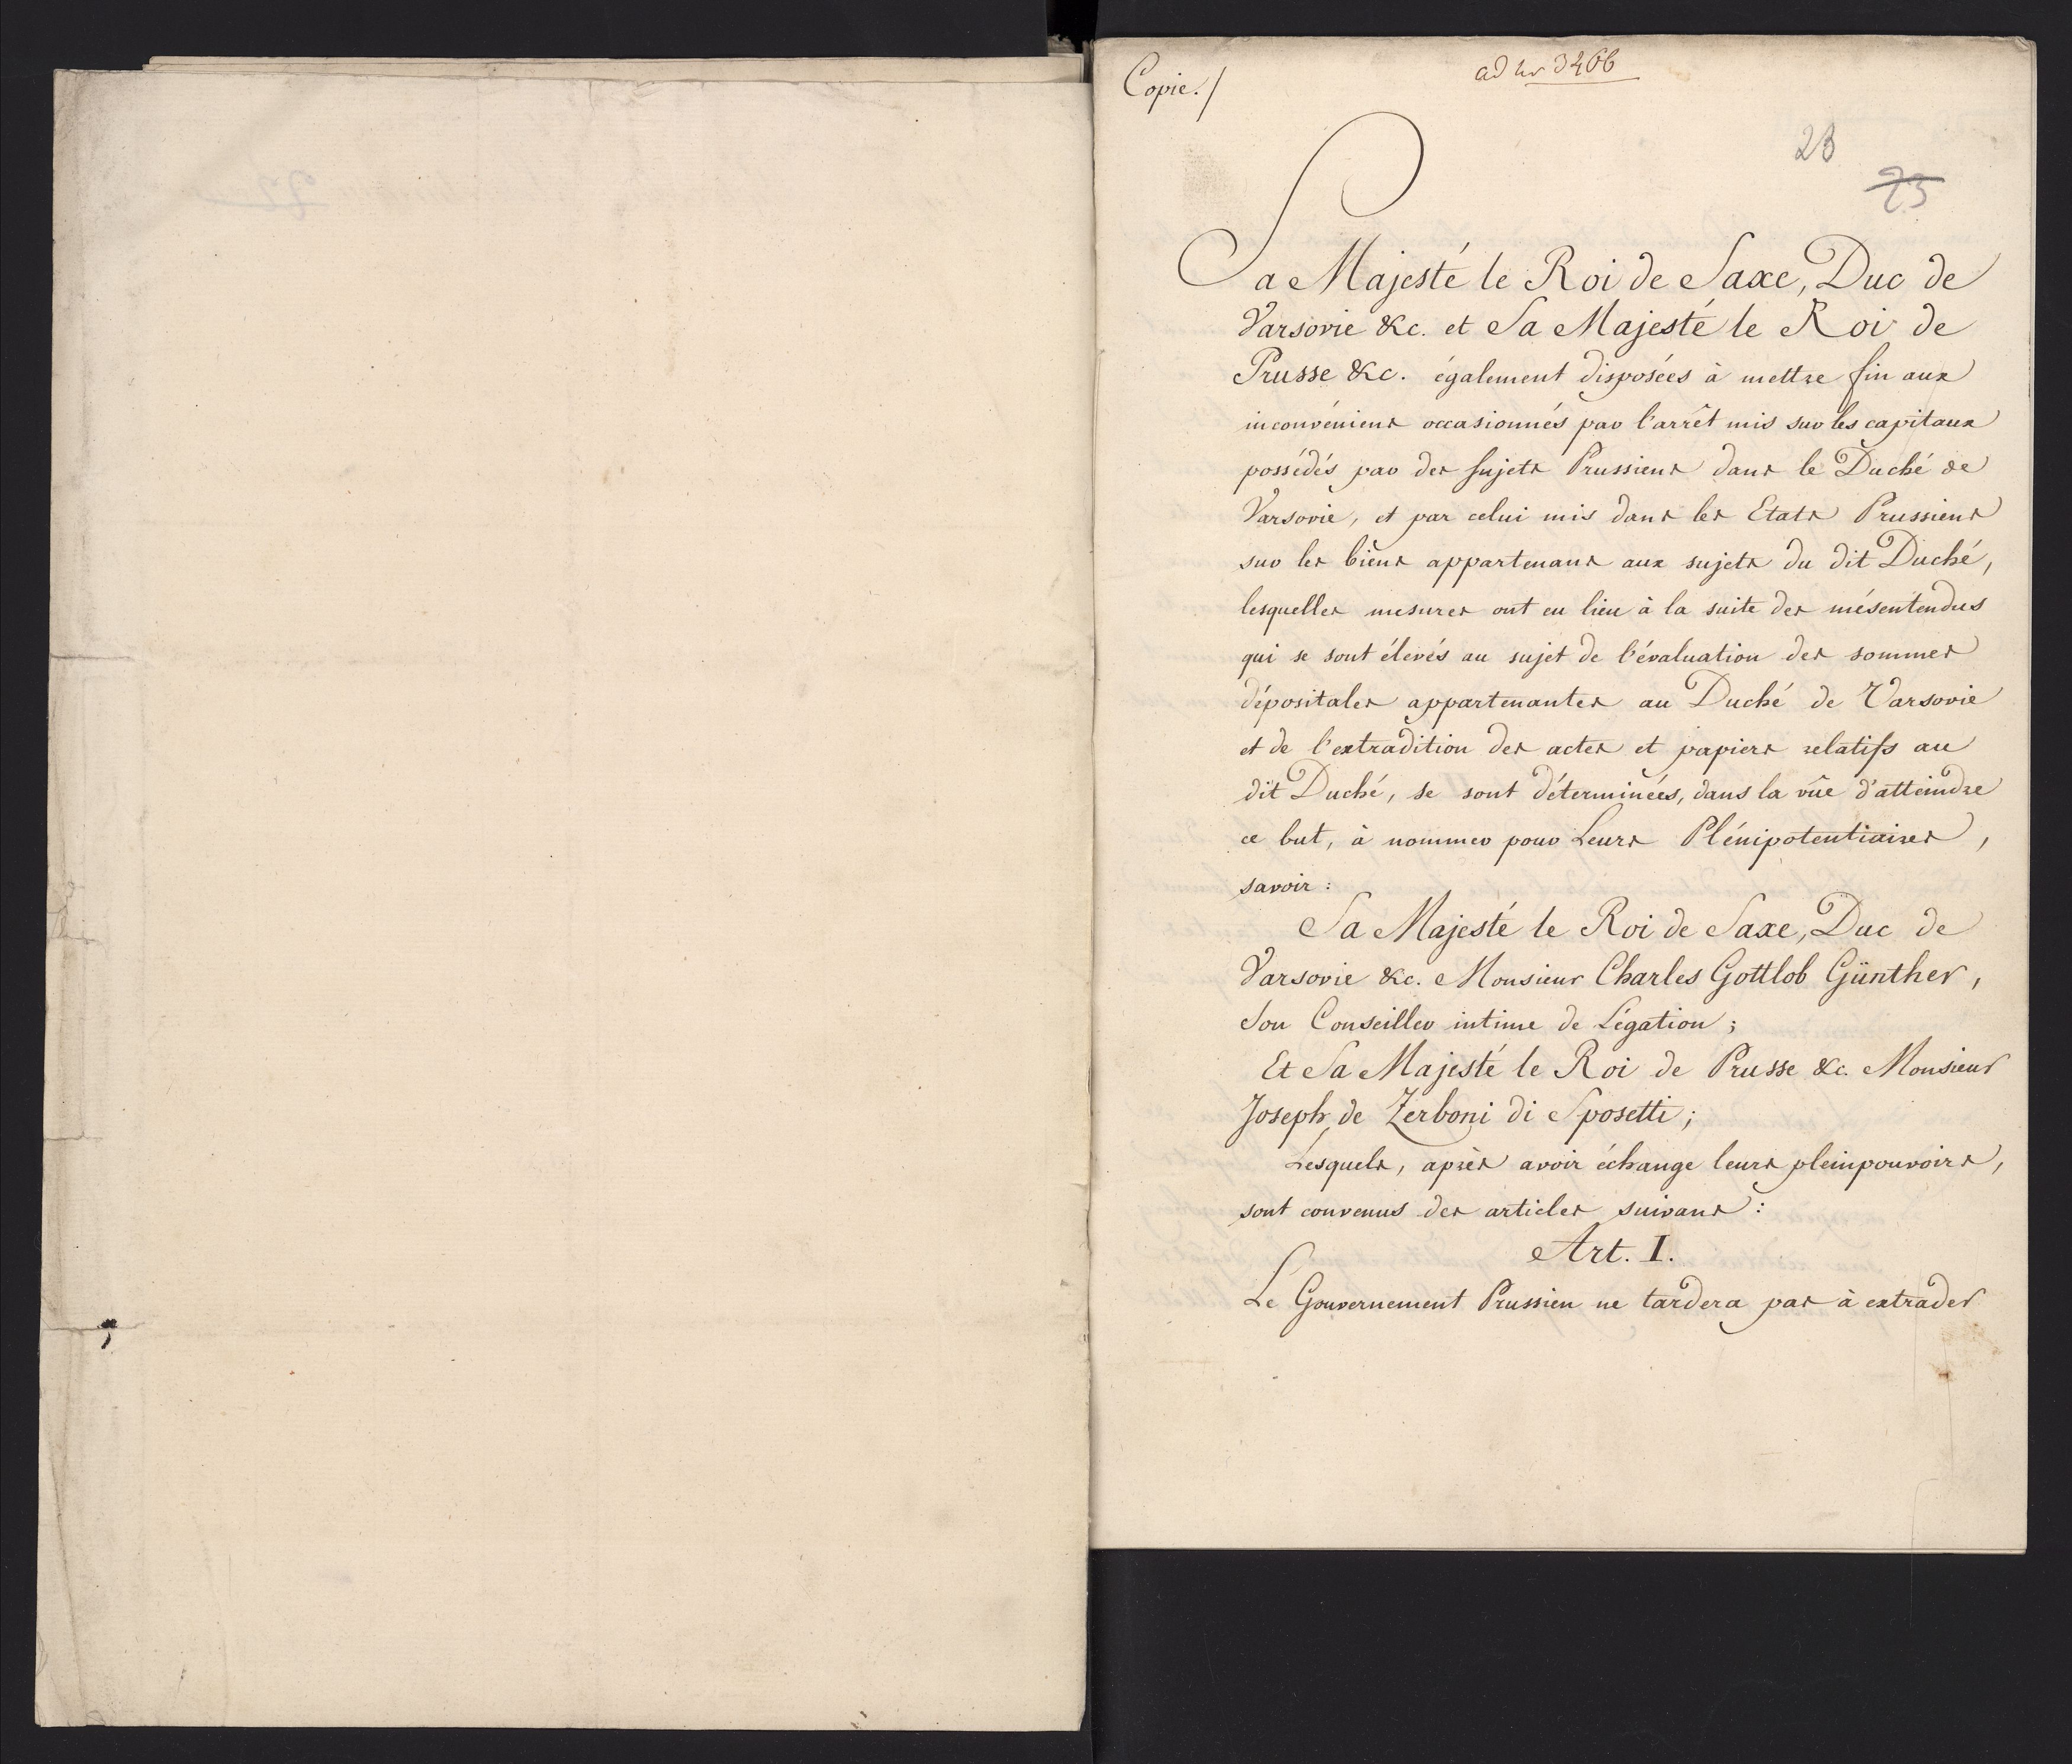 Copie./
ad nr 3466
23
23
Sa Majesté le Roi de Saxe, Duc de
Varsovie &c. et Sa Majesté le Roi de
Prusse &c. également disposées à mettre fin aux
inconvéniens occasionnés par l'arrêt mis sur les capitaux
possédés par des sujets Prussiens dans le Duché de
Varsovie, et par celui mis dans les Etats Prussiens
sur les biens appartenans aux sujets du dit Duché,
lesquelles mesures ont eu lieu à la suite des mésentendus
qui se sont élevés au sujet de l'évaluation des sommes
dépositales appartenantes au Duché de Varsovie
et de l'extradition des actes et papiers relatifs au
dit Duché, se sont déterminées, dans la vûe d'atteindre
ce but, à nommer pour Leurs Plénipotentiaires,
savoir:
Sa Majesté le Roi de Saxe, Duc de
Varsovie &c. Monsieur Charles Gottlob Günther,
Son Conseiller intime de Légation;
Et Sa Majesté le Roi de Prusse &c. Monsieur
Joseph de Zerboni di Sposetti;
Lesquels, après avoir échange leurs pleinpouvoirs,
sont convenus des articles suivans:
Art. I.
Le Gouvernement Prussien ne tardera pas à extrader